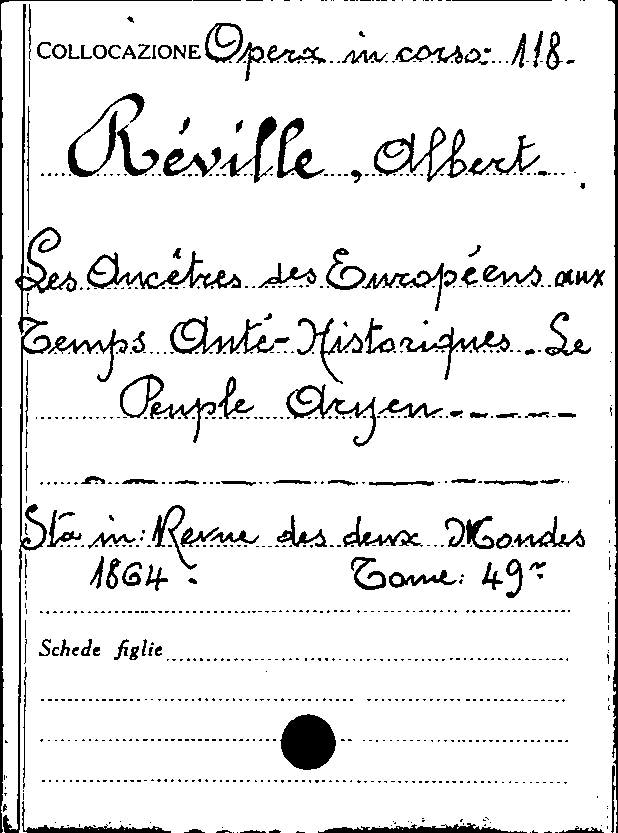 COLLOCAZIONE Opera in corso: 118.
Réville, Albert.
Les Ancêtres des Européens aux
Temps Anté-Historiques. Le
Peuple Aryen - - - - -
Sta in: Revue des deux Mondes
1864: Tome: 49~
Schede figlie